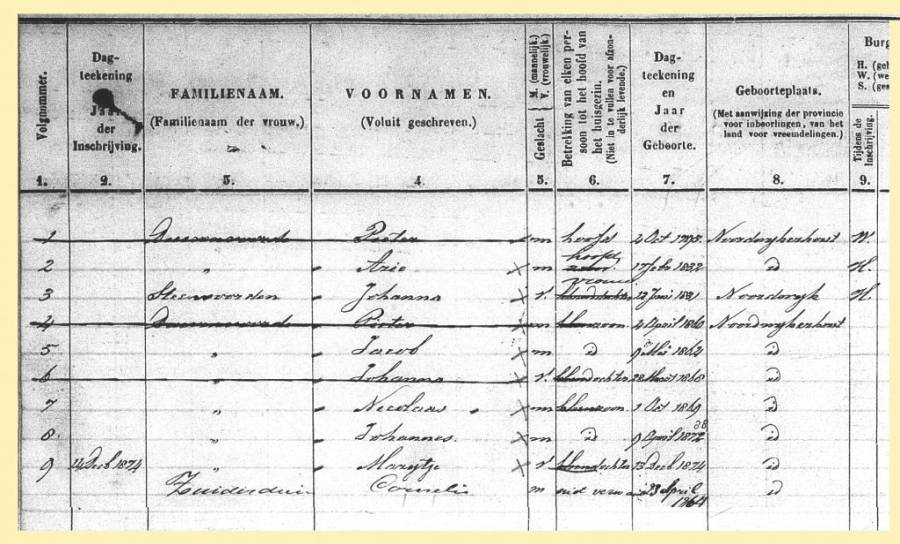 Volgnommer.
Dag-
teekening
en
Jaar
der
Inschrijving.
FAMILIENAAM.
(Familienaam der vrouw,)
VOORNAMEN.
(Voluit geschreven.)
Geslacht M. (mannelijk.) V. (vrouwelijk.)
Betrekking van elken per-
soon tot het hoofd van
het huisgezin.
(Niet in te vullen voor afzon-
derlijk levende.)
Dag-
teekening
en
Jaar
der
Geboorte.
Geboorteplaats.
(Met aanwijzing der provincie
voor inboorlingen, van het
land voor vreemdelingen.)
Burg
H. (geh
W. (we
S. (ges
Tijdens de
inschrijving.
1. 2. 3. 4. 5. 6. 7. 8. 9.
1 Pieter m hoofd 2 Oct Noordwijkerhout W.
2 " Arie m hoofd 17 Febr 1832 id H.
3 Steenvoorden Johanna v. vrouw Juni Noordwijk H.
4 Pieter m zoon April 1860 Noordwijkerhout
5 " Jacob m id 9 Mei 1862 id
6 " Johanna v. dochter Maart 1868 id
7 " Nicolaas m zoon 1 Oct 1869 id
8 " Johannes m id 9 April 1872 id
9 14 Decb 1874 " Marytje v dochter 13 Decb 1874 id
Zuiderduin Cornelis m April 1864 id